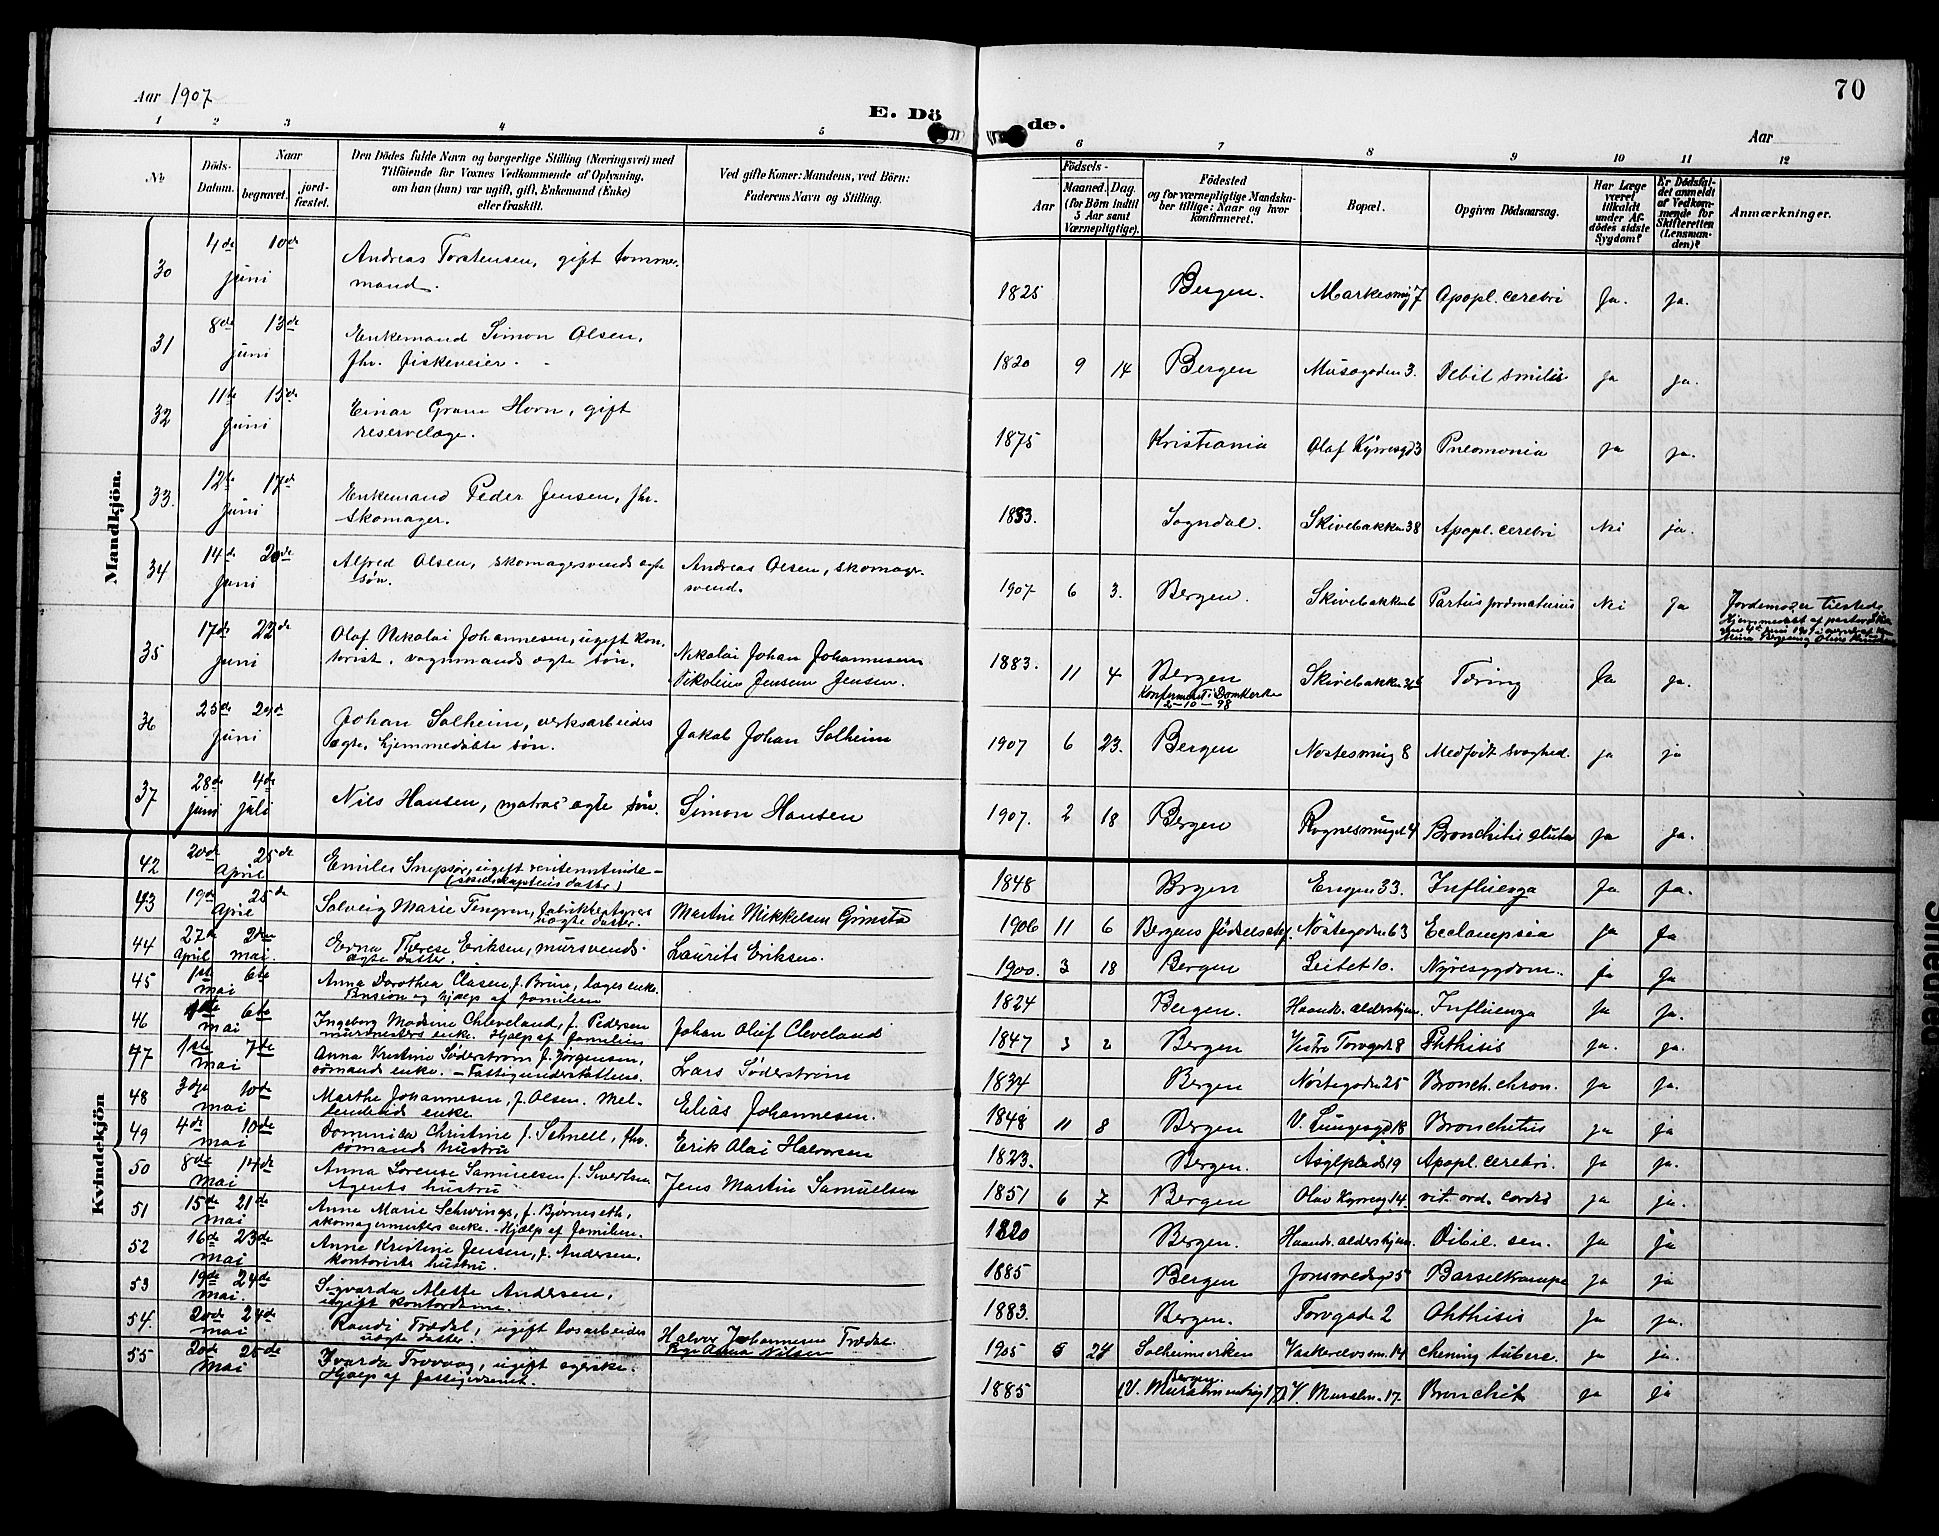 Aar 1907
E. Dö de.
70
Aar
1 2 3 4 5 6 7 8 9 10 11 12
No
Döds-Datum.
Naar
begravet.
jord-fæstet.
Den Dödes fulde Navn og borgerlige Stilling (Næringsvei) med
Tilföiende for Voxnes Vedkommende af Oplysning,
om han (hun) var ugift, gift, Enkemand (Enke)
eller fraskilt.
Ved gifte Koner: Mandens, ved Börn:
Faderens Navn og Stilling.
Födsels-
Aar
Maaned. Dag.
(for Börn indtil
5 Aar samt
Værnepligtige).
Födested
og for værnepligtige Mandskaber tillige: Naar og hvor
konfirmeret.
Bopæl.
Opgiven Dödsaarsag.
Har Læge
været
tilkaldt
under Afdödes sidste
Sygdom?
Er Dödsfaldet anmeldt
af Vedkommende for
Skifteretten
(Lensmanden)?
Anmærkninger.
Mandkjön.
30 4de juni 10de Andreas Torstensen, gift tømmermand. 1825 Bergen. Markesmug 7 Apopl. cerebri Ja. ja.
31 8de juni 13de Enkemand Simon Olsen, fhv. fiskeveier. 1820 9 14 Bergen Musegaden 3. Debil. senilis ja ja.
32 11te juni 15de Einar Grane Horn, gift reservelæge. 1875 Kristiania Olaf Kyrresgd 3 Pneomonia ja ja.
33. 12te juni 17de Enkemand Peder Jensen, fhv. skomager. 1833. Sogndal. Skivebakken 38 Apopl. cerebri Nei ja.
34 14de juni 20de Alfred Olsen, skomagersvends ægte søn. Andreas Olsen, skomagersvend. 1907 6 3. Bergen. Skivebakken 6 Partus præmaturus Nei Ja Jordemoder tilstede
Hjemmedøbt af
35 17de juni 22de Olaf Nikolai Johannesen, ugift kontorist, vognmands ægte søn. Nikolai Johan Johannesen Nikoline Jensen Jensen. 1883. 11 4 Bergen Konfirmert i Domkirke 2-10-98 Skivebakken Tæring Ja ja.
36 23de juni 29de Johan Solheim, verksarbeides ægte, hjemmedøbte søn. Jakob Johan Solheim 1907 6 23. Bergen Nøstesmug 8 Medfødt svaghed. ja ja
37 28de juni 4de juli Nils Hansen, matros' ægte søn. Simon Hansen 1907. 2 18 Bergen Rognesmuget 4 Bronchitis acuta ja ja.
Kvindekjön
42 20de April 25de Emilie ugift rentenistinde - (skibskapteins datter) 1848 Bergen Engen 33. Influenza Ja ja.
43 19de April 25de Solveig Marie Tengren, uægte datter. Martin Mikkelsen Grimstad 1906 11 6 Bergens fødselsstif. Nøstegaden 63 Ecclampsia ja Ja
44 27de April 2den mai. Erna Therese Eriksen, mursvends ægte datter. Laurits Eriksen. 1900. 3 18 Bergen Leitet 10. Nyresygdom. ja Ja
45 1ste mai 6te Anna Dorothea Clasen, f. Brun, læges enke. Pension og hjælp af familien 1824 Bergen. Haandv. aldershjem. Influenza Ja ja.
46 1ste mai 6te Ingeborg Madsine Cleveland, f. Pedersen murmesters enke. Hjælp af familien Johan Oluf Cleveland 1847 3 2 Bergen Vestre Torvgade 8 Phthisis ja. ja.
47 1ste mai 7de Anna Kristine Söderström f. Jørgensen, sømands enke. - Fattigunderstøttelse. Lars Söderström 1834 Bergen Nøstegaden 25 Bronch. chron. ja ja.
48 3dje mai 10de Marthe Johannesen, f. Olsen. enke Elias Johannesen. 1848 11 8 Bergen V. Lungesgd 18 Bronchitis ja ja
49 4de mai 10de Christine f. Schnell, fhv. sømands hustru Erik Olai Halvorsen 1823. Bergen. Asylplads 19 Apopl. cerebri. ja ja
50 8de mai 14de Anna Sorense Samuelsen f. Agents hustru Jens Martin Samuelsen 1851 6 7 Bergen Olav Kyrresg 14. vit. org. cordis ja ja.
51 15de mai 21de Anne Marie Schwings, f. Bjørneseth, skomagermesters enke. Hjælp af familien. 1820 Bergen. Haandv. aldershjem. Debil. sen. ja ja
52 16de mai 23de Anne Kristine Jensen, f. Andersen, kontorists hustru. 1885 Bergen Jonsvoldsgd 5 Barselkrampe ja ja
53 19de mai. 24de Sigvarda Alette Andersen, ugift kontordame. 1883. Bergen. Torvgade 2 Phthisis ja ja.
54. 20de mai 24de Randi Trædal, ugift løsarbeides uægte datter. Halvor Johannesen Trædal Anna Nilsen 1905 5 24 Solheimsviken 14 tuberc. ja ja.
55 20de mai 25de Ivarda ugift Hjælp af fattigvæsenet. 1885 Bergen. 17 17. Bronchit ja ja